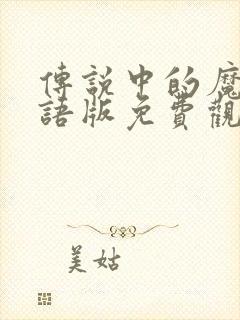 傳説中的魔
語版免費觀
美姑